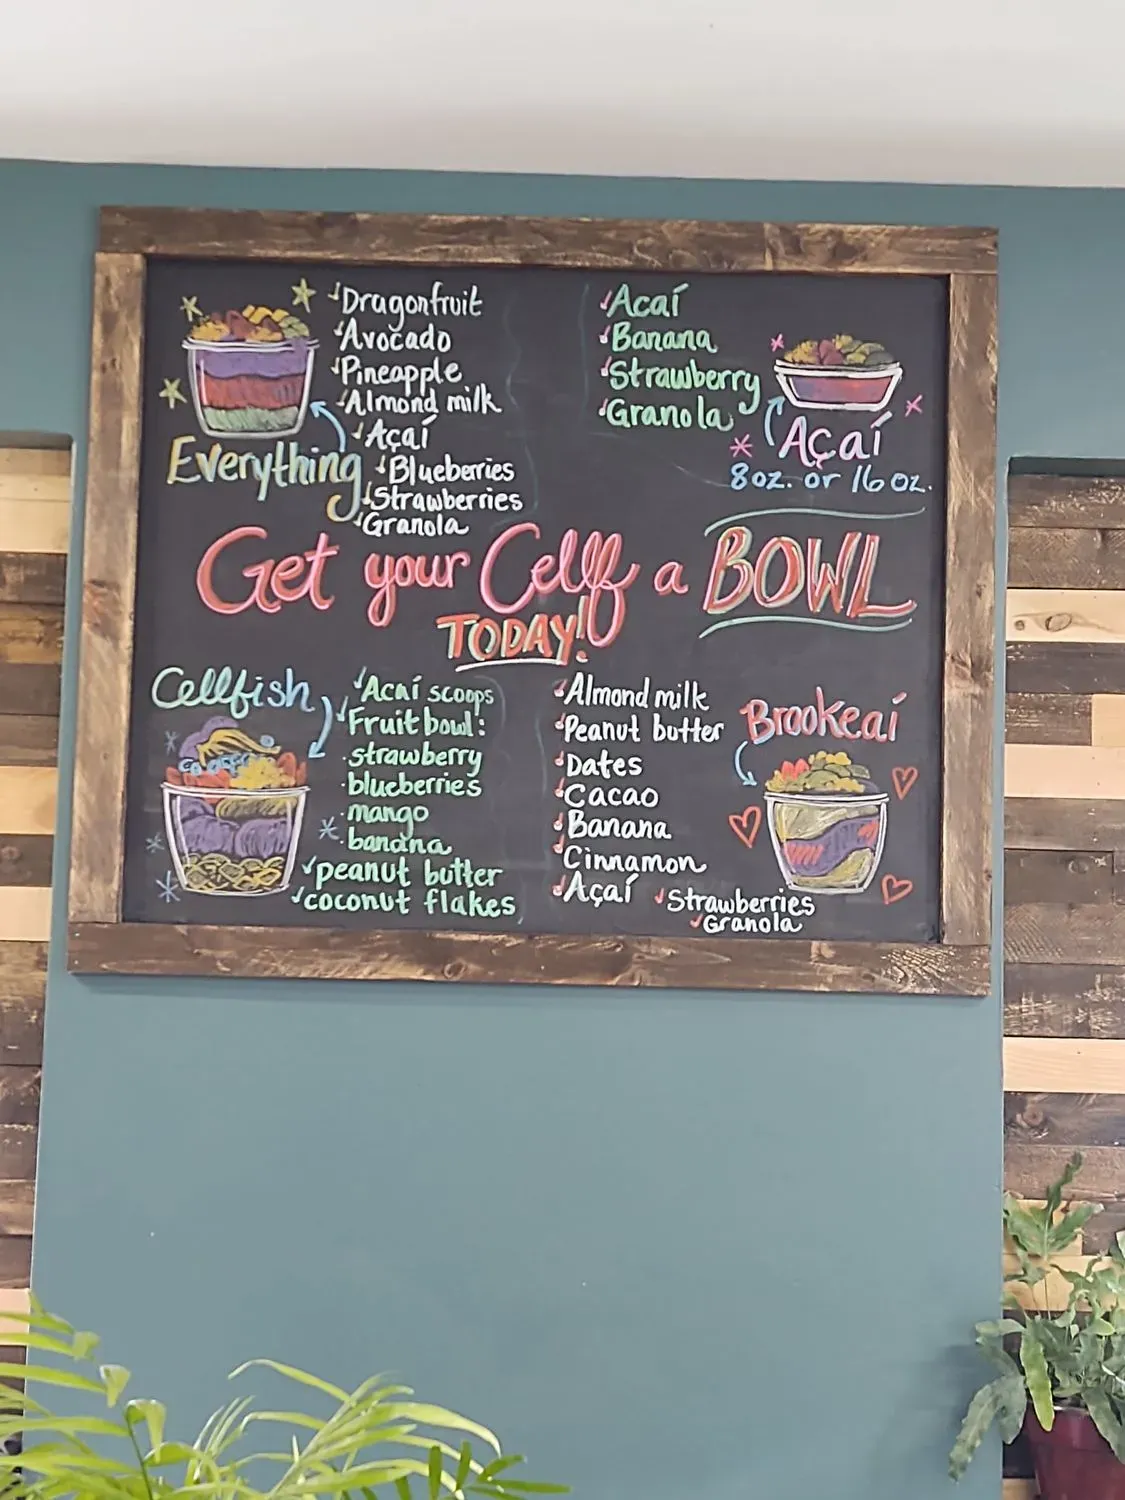 Dragonfruit
Avocado
Pineapple
Almond milk
Açaí
Blueberries
Strawberries
Granola
Everything
Acaí
Banana
Strawberry
Granola
Açaí
8oz. or 16oz.
Get your Cellf a BOWL
TODAY!
Cellfish
Acaí scoops
Fruit bowl:
·strawberry
·blueberries
·mango
·banana
peanut butter
coconut flakes
Almond milk
Peanut butter
Dates
Cacao
Banana
Cinnamon
Açaí
Strawberries
Granola
Brookeaí